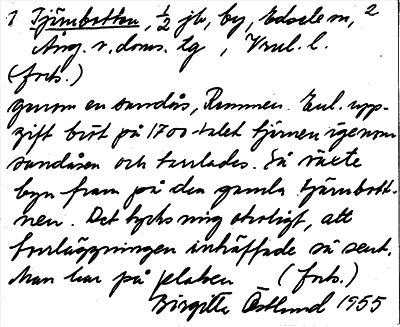 1 Tjärnbotten, ½ jb, by, Edsele sn, 2
Ång. v. doms. lg , Vnul. l.
(forts.)
genom en sandås, Remmen. Enl. upp-
gift bröt på 1700-talet tjärnen igenom
sandåsen och torrlades. Så växte
byn fram på den gamla tjärnbott-
nen. Det tycks mig otroligt, att
torrläggningen inträffade så sent.
Man har på platsen (forts.)
Birgitta Östlund 1955